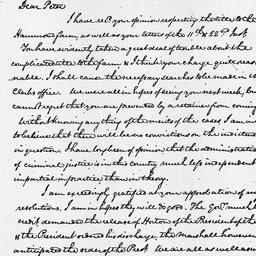 Dear Peter
I have recd your opinion respecting the title to the
Hammond farm, as well as your letters of the 11th & 22nd Inst.
You have evidently taken a great deal of trouble about the
complicated title to the farm & I think your charge quite reaso
nable. I shall cause the necessary searches to be made in the
Clerks office. We were all in hopes of seeing you next week, but
cannot regret that you are prevented by a retainer from coming
Without knowing any thing of the merits of the cases, I am in
to believe that there will be no convictions on the indictme
in question. I have long been of opinion that the administration
of criminal justice is in this county much less independent
impartial in practice than in theory.
I am exceedingly gratified at your approbation of my
resolutions. I am in hopes they will do good. The Govt. much to
credit demanded the release of Horton of the President of the
& the President ordered his discharge the Marshall however
anticipated the order of the Prest. We are all as well as us